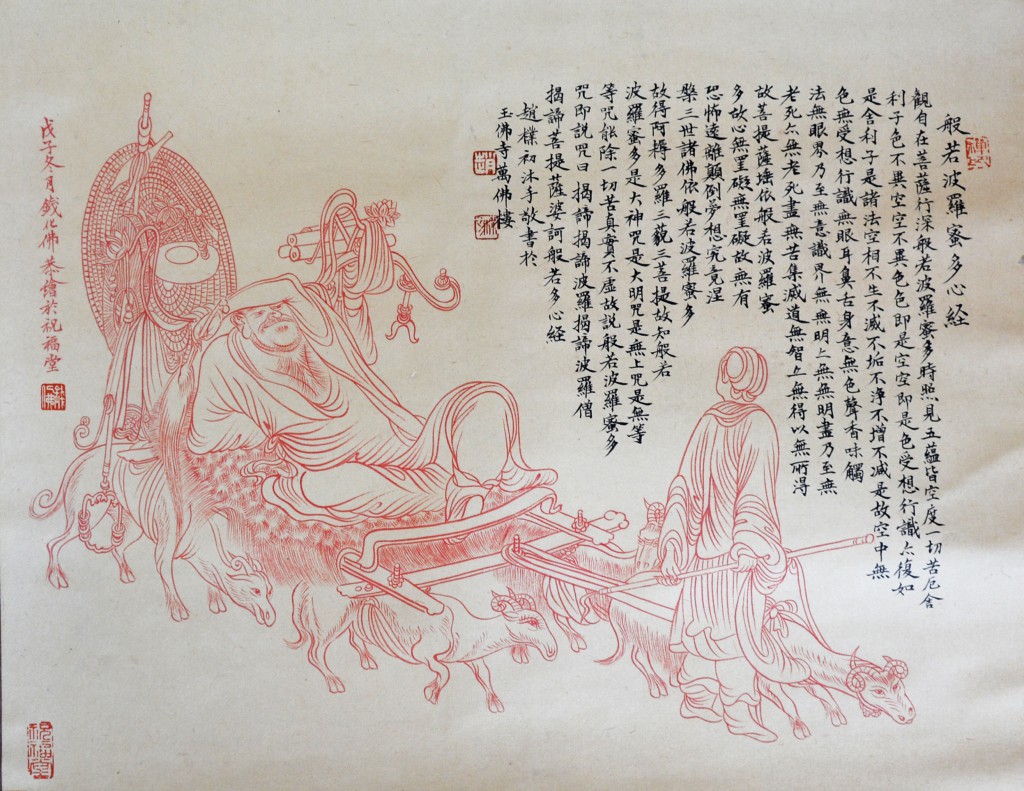 般若波羅蜜多心経
觀自在菩薩行深般若波羅蜜多時照見五蘊皆空度一切苦厄舍
利子色不異空空不異色色即是空空即是色受想行識亦復如
是舍利子是諸法空相不生不滅不垢不淨不增不減是故空中無
色無受想行識無眼耳鼻舌身意無色聲香味觸
法無眼界乃至無意識界無無明亦無無明盡乃至無
老死亦無老死盡無苦集滅道無智亦無得以無所得
故菩提薩埵依般若波羅蜜
多故心無罣礙無罣礙故無有
恐怖遠離顛倒夢想究竟涅
槃三世諸佛依般若波羅蜜多
故得阿耨多羅三藐三菩提故知般若
波羅蜜多是大神咒是大明咒是無上咒是無等
等咒能除一切苦真實不虛故說般若波羅蜜多
咒即說咒曰 揭諦揭諦波羅揭諦波羅僧
揭諦菩提薩婆訶般若多心經
趙樸初沐手敬書於
玉佛寺萬佛樓
趙
戊子冬月鐵化佛恭繪於祝福堂
祝福堂